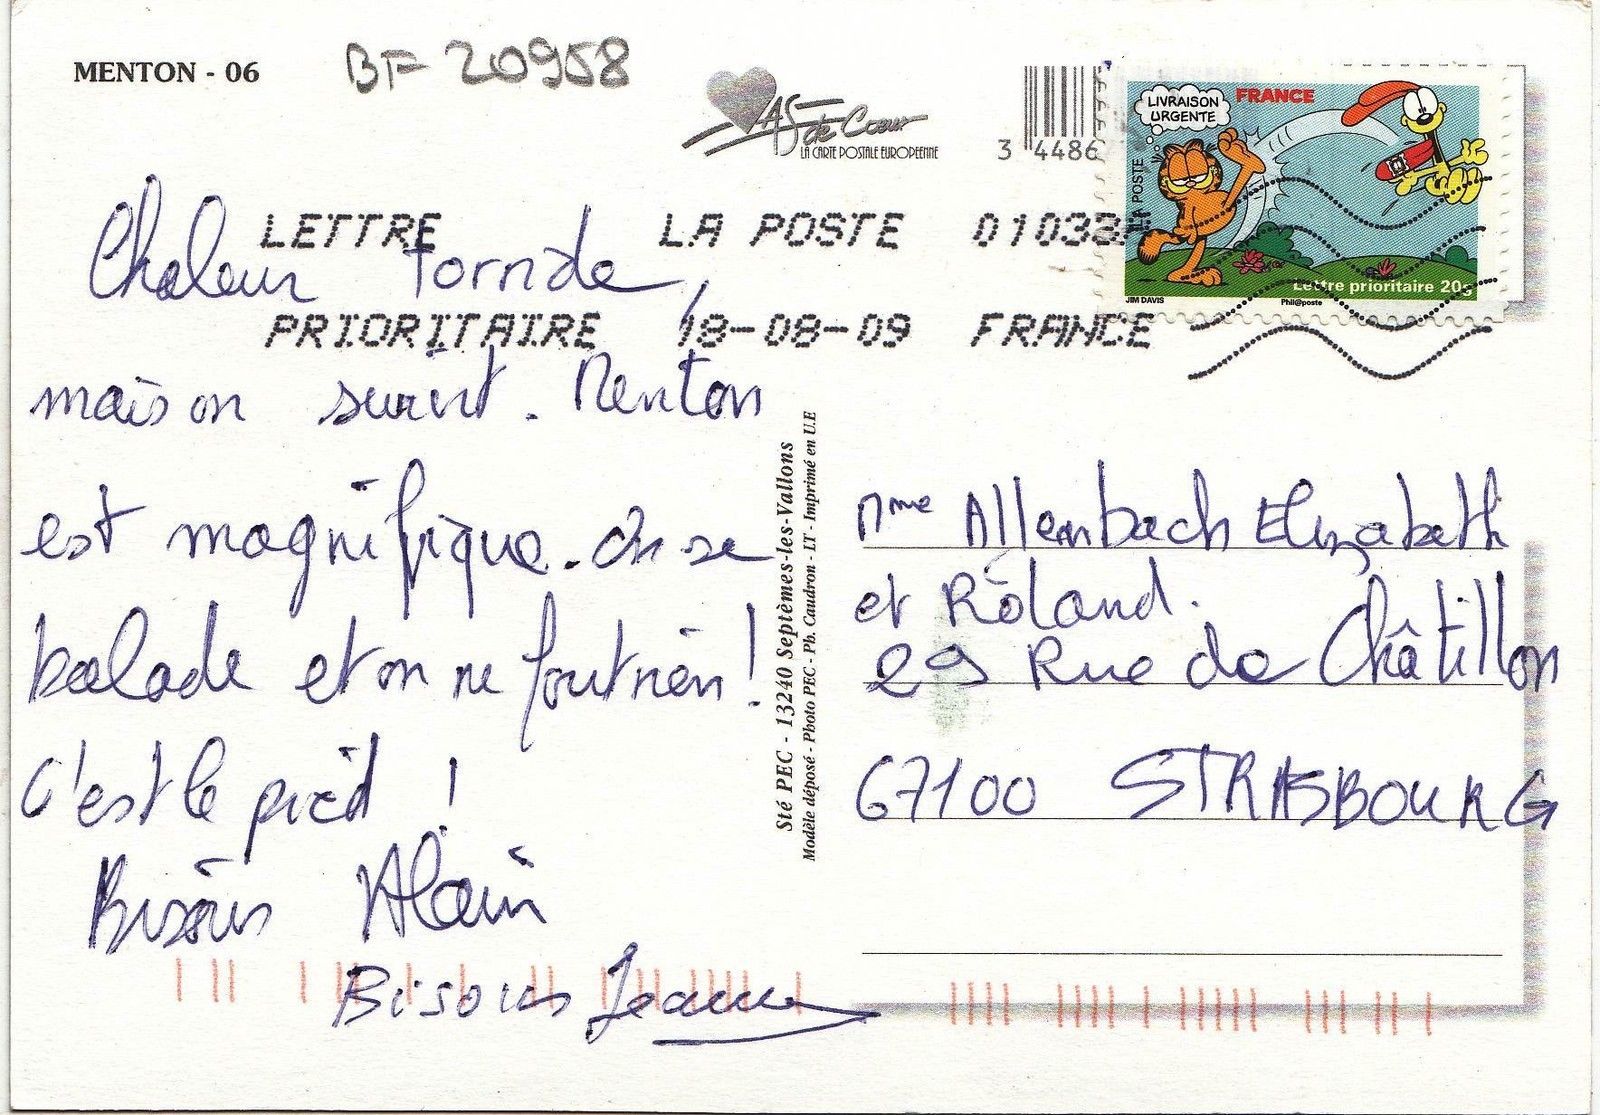 MENTON - 06
BF 20958
AS de Cœur
LA CARTE POSTALE EUROPEENNE
3 4486
LIVRAISON
URGENTE
FRANCE
LA POSTE
Lettre prioritaire 20g
JIM DAVIS
Phil@poste
LETTRE LA POSTE 01033A
PRIORITAIRE 18-08-09 FRANCE
Chaleur torride,
mais on survit. Menton
est magnifique. On se
balade et on ne fout rien !
C'est le pied !
Bisous Alain
Bisous Jeanne
Sté PEC - 13240 Septèmes-les-Vallons
Modèle déposé - Photo PEC - Ph. Caudron - LT - Imprimé en U.E
Mme Allenbach Elizabeth
et Roland.
29 Rue de Châtillon
67100 STRASBOURG